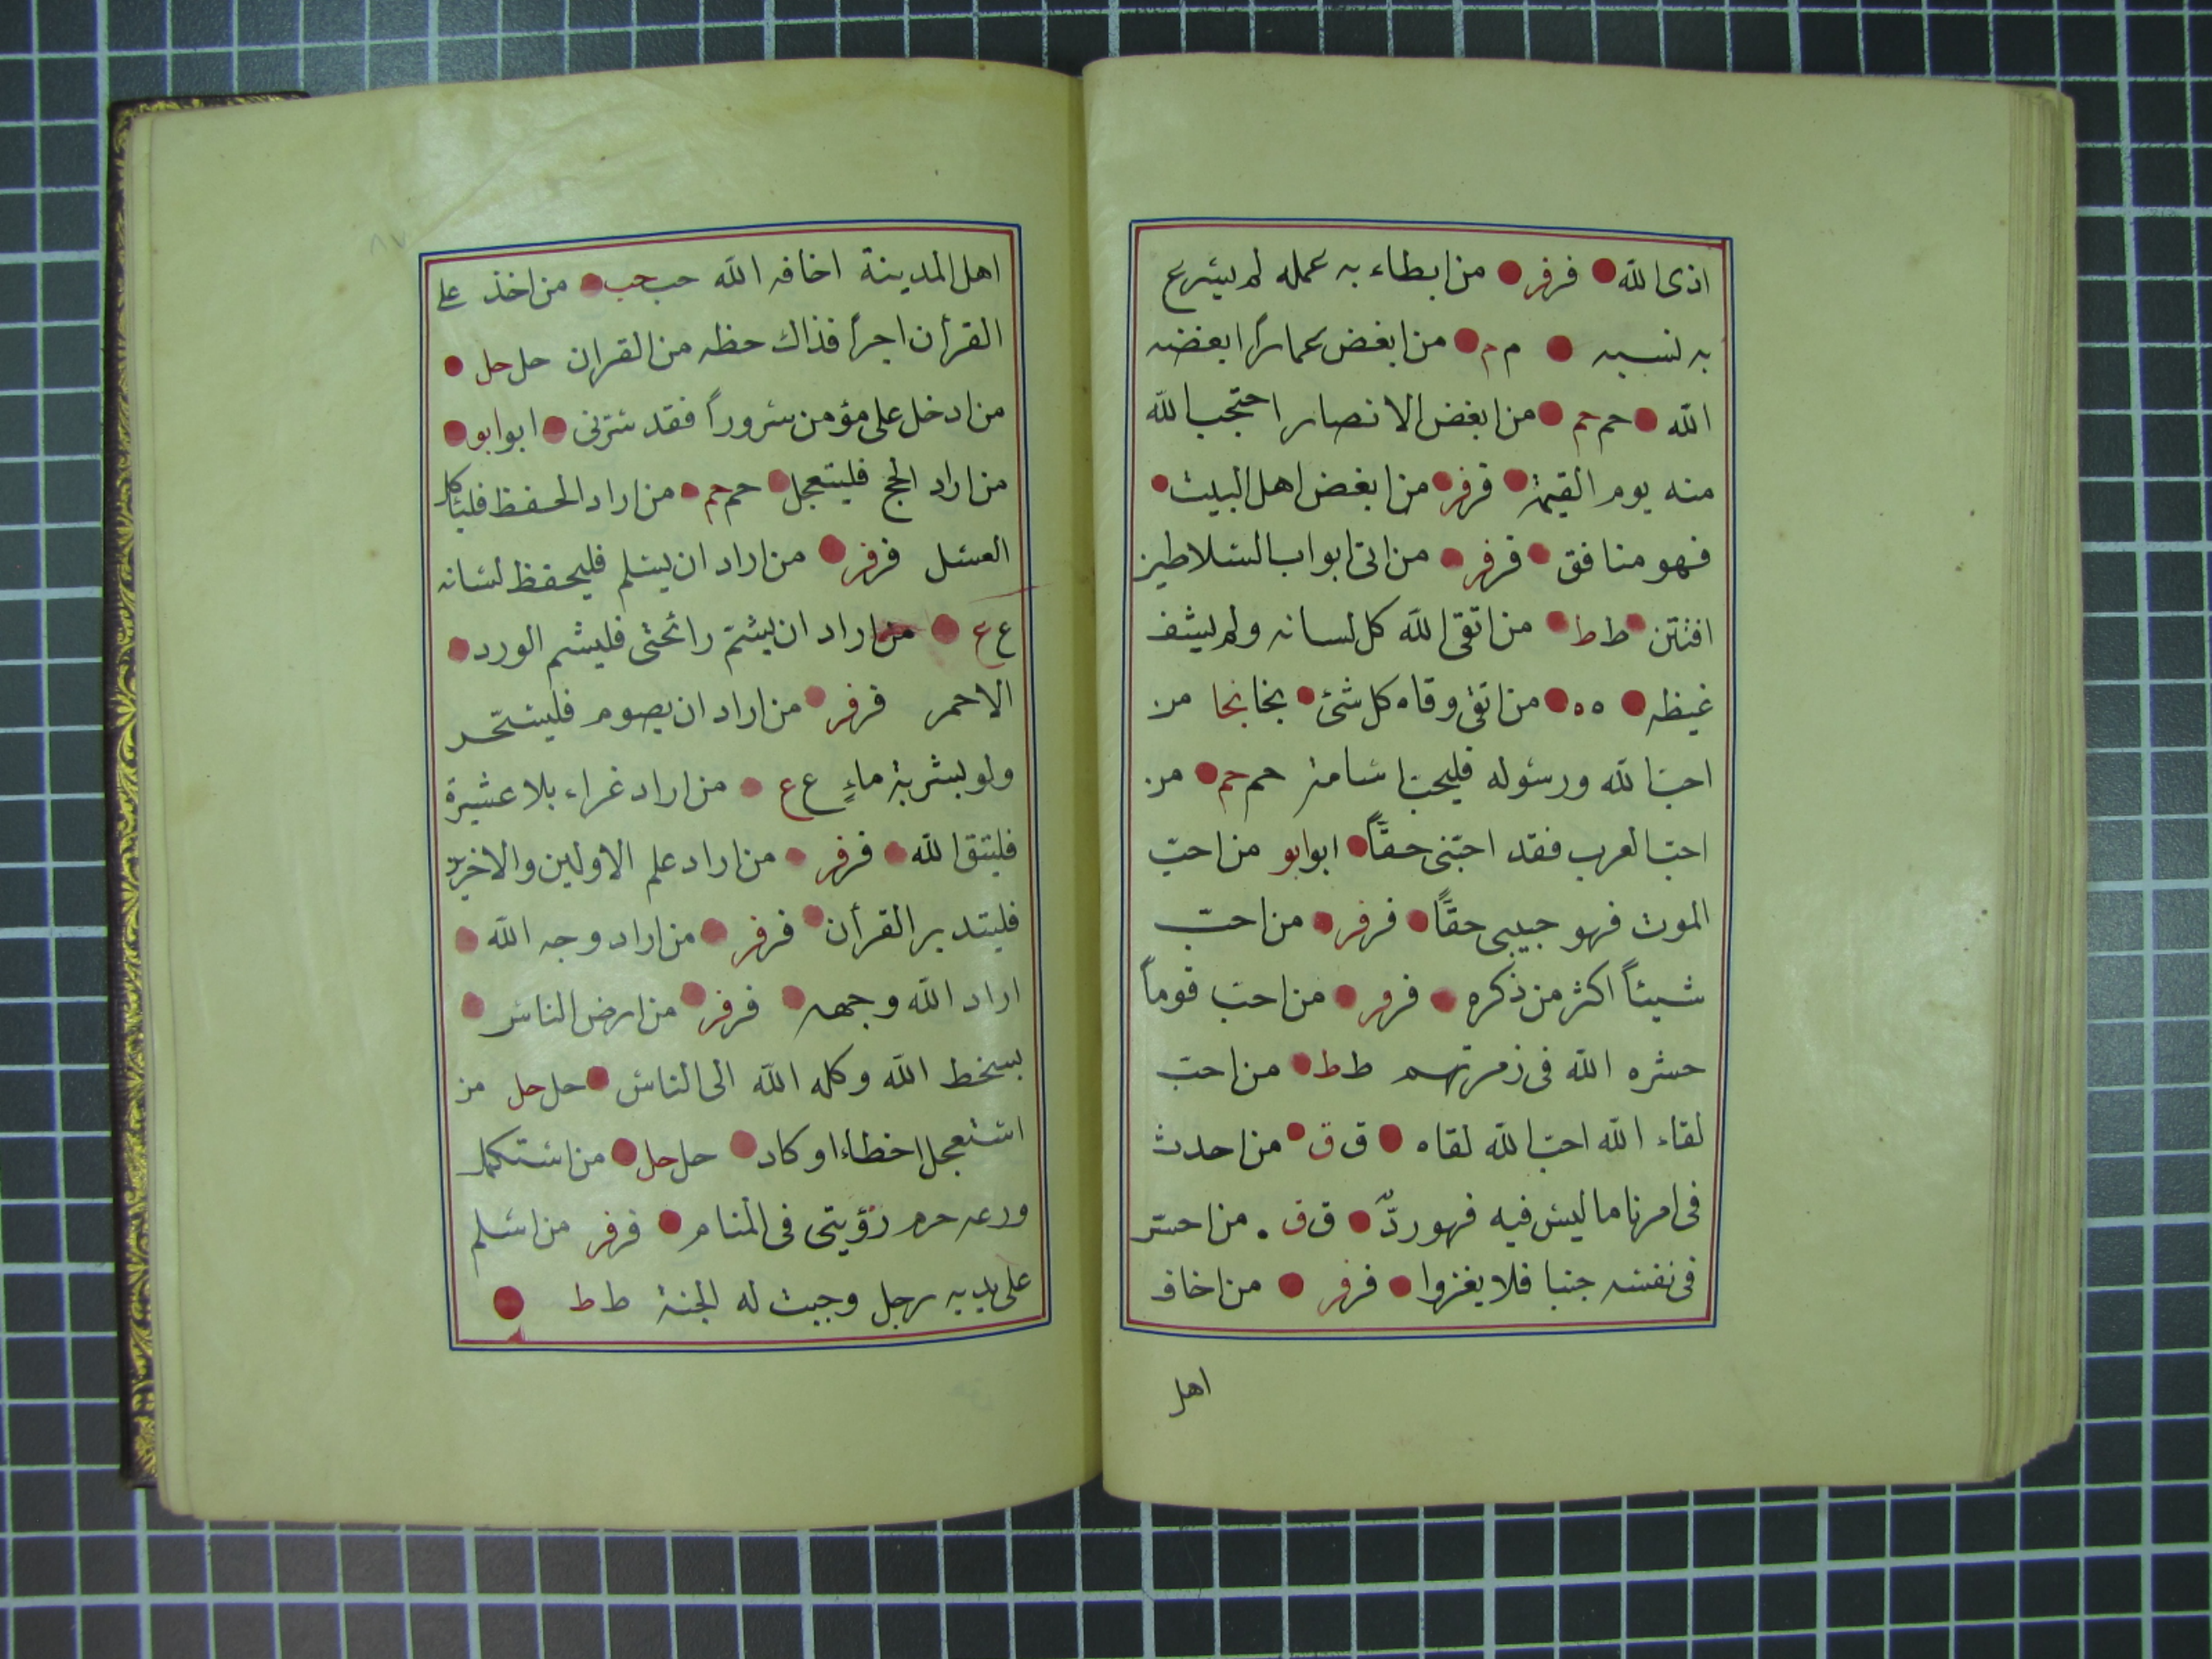 اذى الله فر فر من ابطاء به عمله لم يسرع
به نسبه م م من ابغض عمارا ابغضه
الله حم حم من ابغض الانصار احتجب الله
منه يوم القيمة فر فر من ابغض اهل البيت
فهو منافق فر فر من اتى ابواب السلاطين
افتتن ط ط من اتقى الله كل لسانه ولم يشف
غيظه ه ه من اتقى وقاه كل شئ نجا نجا من
احب الله ورسوله فليحب اسامة حم حم من
احب العرب فقد احبنى حقاً ابو ابو من احبّ
الموت فهو حبيبى حقاً فر فر من احبّ
شيئاً اكثر من ذكره فر فر من احب قوماً
حشره الله فى زمرتهم ط ط من احب
لقاء الله احب الله لقاه ق ق من احدث
فى امرنا ما ليس فيه فهو ردّ ق ق من احسّ
فى نفسه جنبا فلا يغزوا فر فر من اخاف
اهل
اهل المدينة اخافه الله حب حب من اخذ على
القرأن اجراً فذاك حظه من القران حل حل
من ادخل على مؤمن سروراً فقد سرّنى ابو ابو
من اراد الحج فليتعجل حم حم من اراد الحفظ فليأكل
العسل فر فر من اراد ان يسلم فليحفظ لسانه
ع ع من اراد ان يشمّ رائحتى فليشم الورد
الاحمر فر فر من اراد ان يصوم فليتسحّر
ولو بشربة ماءٍ ع ع من اراد غراء بلا عشيرة
فليتق الله فر فر من اراد علم الاولين والاخرين
فليتدبر القرأن فر فر من اراد وجه الله
اراد الله وجهه فر فر من ارض الناس
بسخط الله وكله الله الى الناس حل حل من
استعجل اخطاء او كاد حل حل من استكمل
ورعه حرم رؤيتى فى المنام فر فر من اسلم
على يديه رجل وجبت له الجنة ط ط